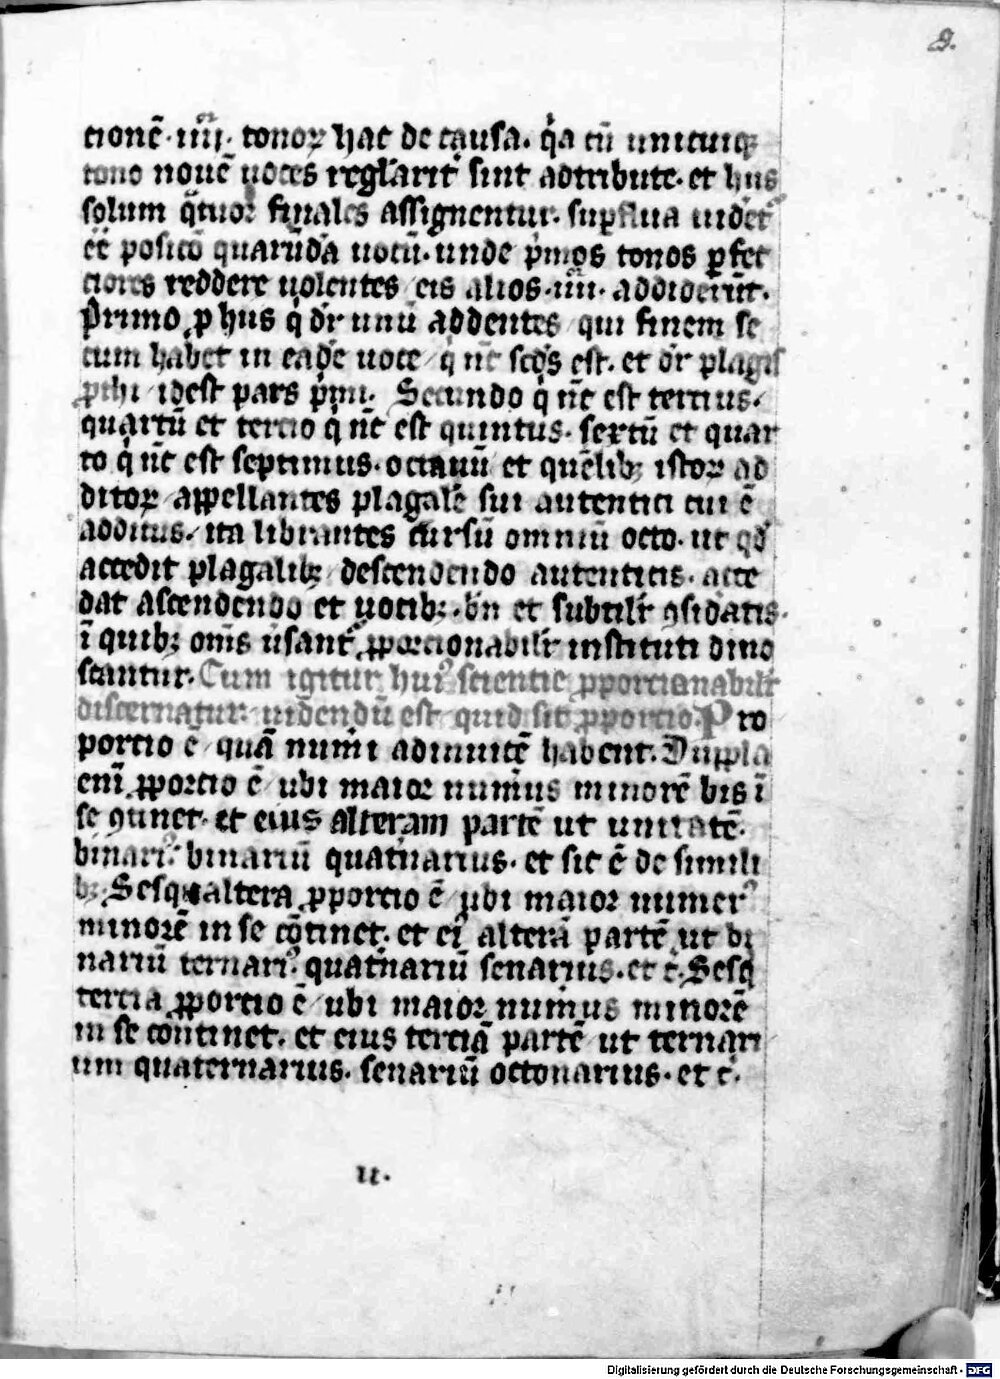 9.
cionē · iiii · tonoꝝ hac de causa. q̇a cū unicuiqꝫ
tono nouē uoces reglarit̄ sint adtribute. et hus
solum q̇tuor finales assignentur. suꝑflua uidet̄
eē posicō quarūdā uocū. unde p̄mos tonos ꝑfec
ciores reddere uolentes eis alios · iiii · addiderūt.
Primo ꝓthus q̇ dr̄ unū addentes qui finem se
cum habet in eadē uoce q̇ nc̄ scd̄s est. et dr̄ plagis
ꝓthi idest pars p̄mi. Secundo q̇ nc̄ est tercius.
quartū et tercio q̇ nc̄ est quintus. sextū et quar
to q̇ nc̄ est septimus. octauū et quēlibꝫ istoꝝ ad
ditoꝝ appellantes plagalē sui autentici cui ē
additus. ita librantes cursū omniū octo. ut qd̄
accedit plagalibꝫ descendendo autenticis. acce
dat ascendendo et uocibꝫ. bn̄ et subtilit̄ ꝯsidatis.
ī quibꝫ om̄s ꝓporcionabilit̄ instituti dino
scantur. Cum igitur huiꝰ scientie ꝓporcionabilit̄
discernatur. uidendū est quid sit ꝓporcio. Pro
porcio ē quā num̄i adinuicē habent. Duppla
eni ꝓporcio ē ubi maior num̄us minorē bis ī
se ꝯtinet. et eius alteram partē ut unitatē.
binariꝰ. binariū quat̄narius. et sic ē de simili
bꝫ. Sesqualtera ꝓporcio ē ubi maior numerꝰ
minorē in se cōtinet. et eiꝰ alterā partē ut bi
nariū ternariꝰ. quat̄nariū senarius. et c̄. Sesq
tercia ꝓporcio ē ubi maior num̄us minorē
in se continet. et eius terciā partē ut ternari
um quaternarius. senariū octonarius. et c̄.
II.
Digitalisierung gefördert durch die Deutsche Forschungsgemeinschaft - DFG